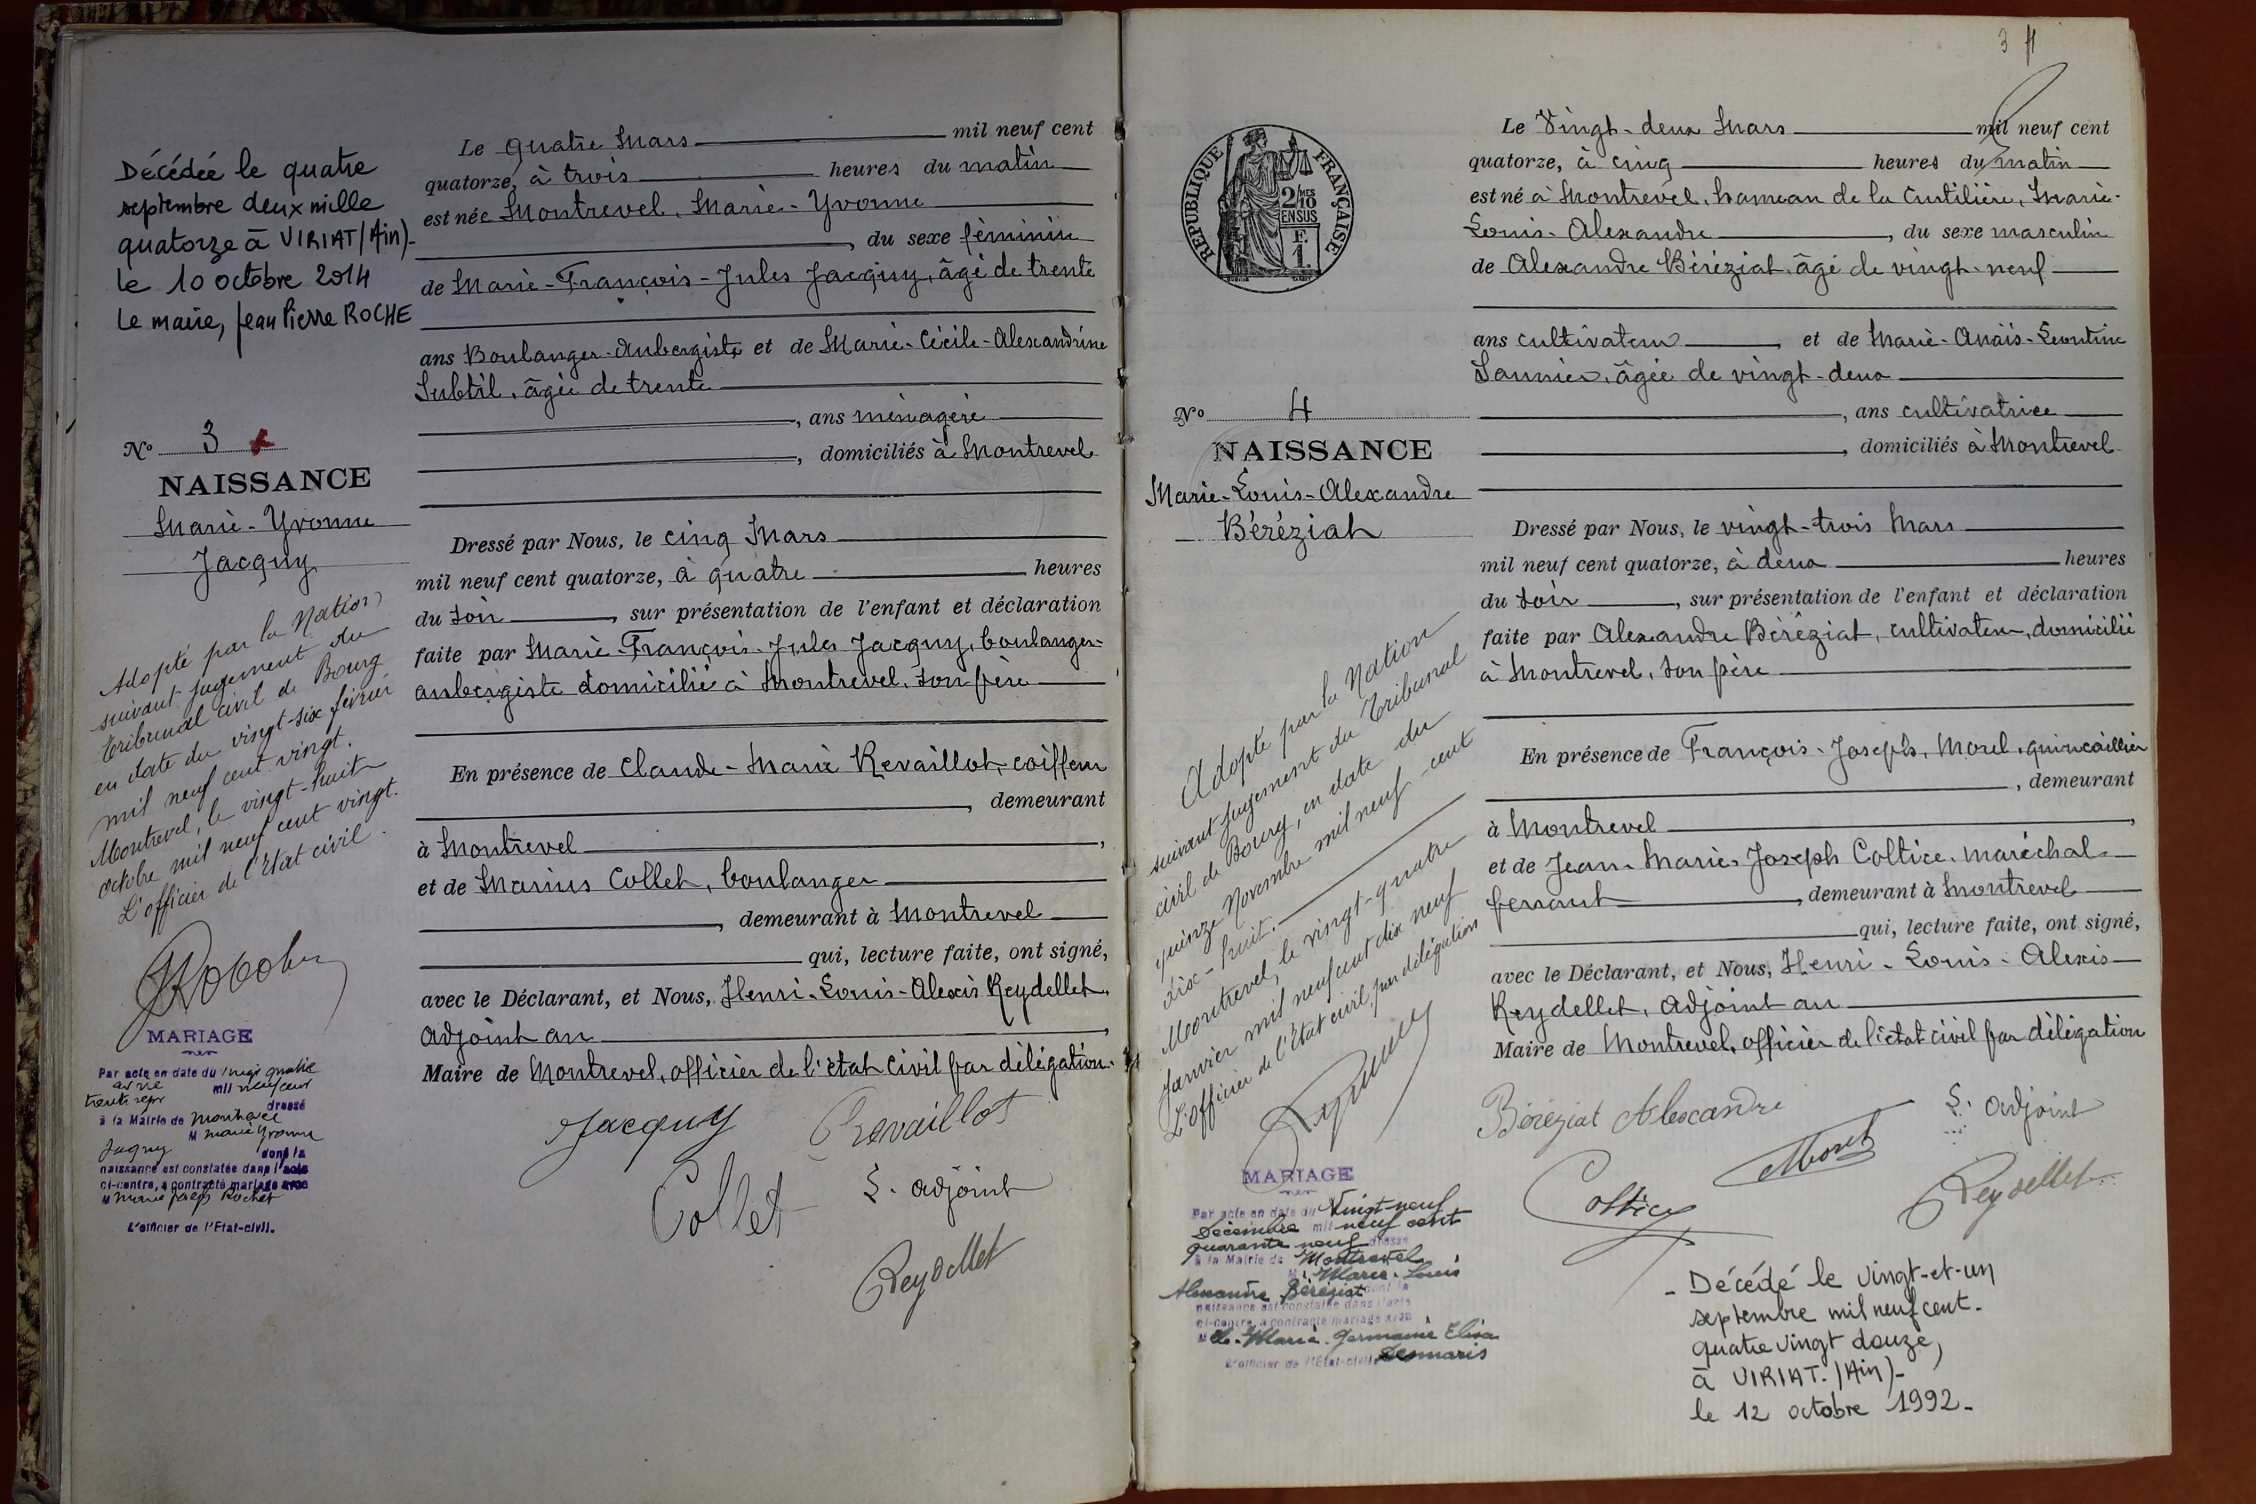 Décédée le quatre
septembre deux mille
quatorze à VIRIAT (Ain)-
le 10 octobre 2014
Le maire, Jean Pierre ROCHE
No 3
NAISSANCE
Marie-Yvonne
Jacquy
Adopté par la Nation
suivant jugement du
tribunal civil de Bourg
en date du vingt-six février
mil neuf cent vingt.
Montrevel, le vingt-huit
octobre mil neuf cent vingt.
L'officier de l'Etat civil.
MARIAGE
Par acte en date du vingt quatre
mil neuf cent
trente sept dressé
à la Mairie de Montrevel
M Marie Yvonne
Jacquy dont la
naissance est constatée dans l'acte
ci-contre, a contracté mariage avec
M Marie Joseph Rochet
L'officier de l'Etat-civil.
Le quatre Mars mil neuf cent
quatorze, à trois heures du matin
est née Montrevel, Marie-Yvonne
, du sexe féminin
de Marie-François-Jules Jacquy, âgé de trente
ans Boulanger-Aubergiste et de Marie-Cécile-Alexandrine
Subtil, âgée de trente
, ans ménagère
, domiciliés à Montrevel
Dressé par Nous, le cinq Mars
mil neuf cent quatorze, à quatre heures
du soir, sur présentation de l'enfant et déclaration
faite par Marie-François-Jules Jacquy, boulanger-
aubergiste domicilié à Montrevel, son père
En présence de Claude-Marie Revaillot, coiffeur
, demeurant
à Montrevel,
et de Marius Collet, boulanger
, demeurant à Montrevel
qui, lecture faite, ont signé,
avec le Déclarant, et Nous, Henri-Louis-Alexis Reydellet,
Adjoint au,
Maire de Montrevel, officier de l'état civil par délégation.
Jacquy Revaillot
Collet L. adjoint
Reydellet
3 4
REPUBLIQUE FRANÇAISE
2/10 MES
EN SUS
F.
1.
No 4
NAISSANCE
Marie-Louis-Alexandre
Béréziat
Adopté par la Nation
suivant jugement du Tribunal
civil de Bourg, en date du
quinze Novembre mil neuf cent
dix-huit.
Montrevel, le vingt-quatre
Janvier mil neuf cent dix neuf
L'officier de l'Etat civil par délégation
MARIAGE
Par acte en date du Vingt-neuf
Décembre mil neuf cent
quarante neuf dressé
à la Mairie de Montrevel
M Marie-Louis
Alexandre Béréziat dont la
naissance est constatée dans l'acte
ci-contre, a contracté mariage avec
M lle Marie-Germaine Elisa
L'officier de l'Etat-civil Desmaris
Le Vingt-deux Mars mil neuf cent
quatorze, à cinq heures du matin
est né à Montrevel, hameau de la Curtilière, Marie-
Louis-Alexandre, du sexe masculin
de Alexandre Béréziat, âgé de vingt-neuf
ans cultivateur, et de Marie-Anaïs-Léontine
Sonnier, âgée de vingt-deux
, ans cultivatrice
, domiciliés à Montrevel
Dressé par Nous, le vingt-trois Mars
mil neuf cent quatorze, à deux heures
du soir, sur présentation de l'enfant et déclaration
faite par Alexandre Béréziat, cultivateur, domicilié
à Montrevel, son père
En présence de François-Joseph, Morel, quincaillier
, demeurant
à Montrevel,
et de Jean-Marie-Joseph Coltice, maréchal-
ferrant, demeurant à Montrevel
qui, lecture faite, ont signé,
avec le Déclarant, et Nous, Henri-Louis-Alexis
Reydellet, Adjoint au
Maire de Montrevel, officier de l'état civil par délégation
Béréziat Alexandre L. adjoint
Morel
Coltice Reydellet
- Décédé le vingt-et-un
septembre mil neuf cent-
quatre vingt douze,
à VIRIAT. (Ain)-
le 12 octobre 1992-